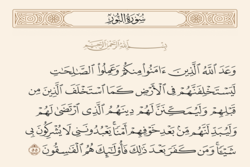 سُورَةُ النُّورِ
بِسْمِ اللَّهِ الرَّحْمَٰنِ الرَّحِيمِ
وَعَدَ اللَّهُ الَّذِينَ ءَامَنُوا مِنكُمْ وَعَمِلُوا الصَّٰلِحَٰتِ
لَيَسْتَخْلِفَنَّهُمْ فِي الْأَرْضِ كَمَا اسْتَخْلَفَ الَّذِينَ مِن
قَبْلِهِمْ وَلَيُمَكِّنَنَّ لَهُمْ دِينَهُمُ الَّذِي ارْتَضَىٰ لَهُمْ
وَلَيُبَدِّلَنَّهُم مِّنۢ بَعْدِ خَوْفِهِمْ أَمْنًا يَعْبُدُونَنِي لَا يُشْرِكُونَ بِي
شَيْـًٔا وَمَن كَفَرَ بَعْدَ ذَٰلِكَ فَأُولَٰئِكَ هُمُ الْفَٰسِقُونَ ٥٥